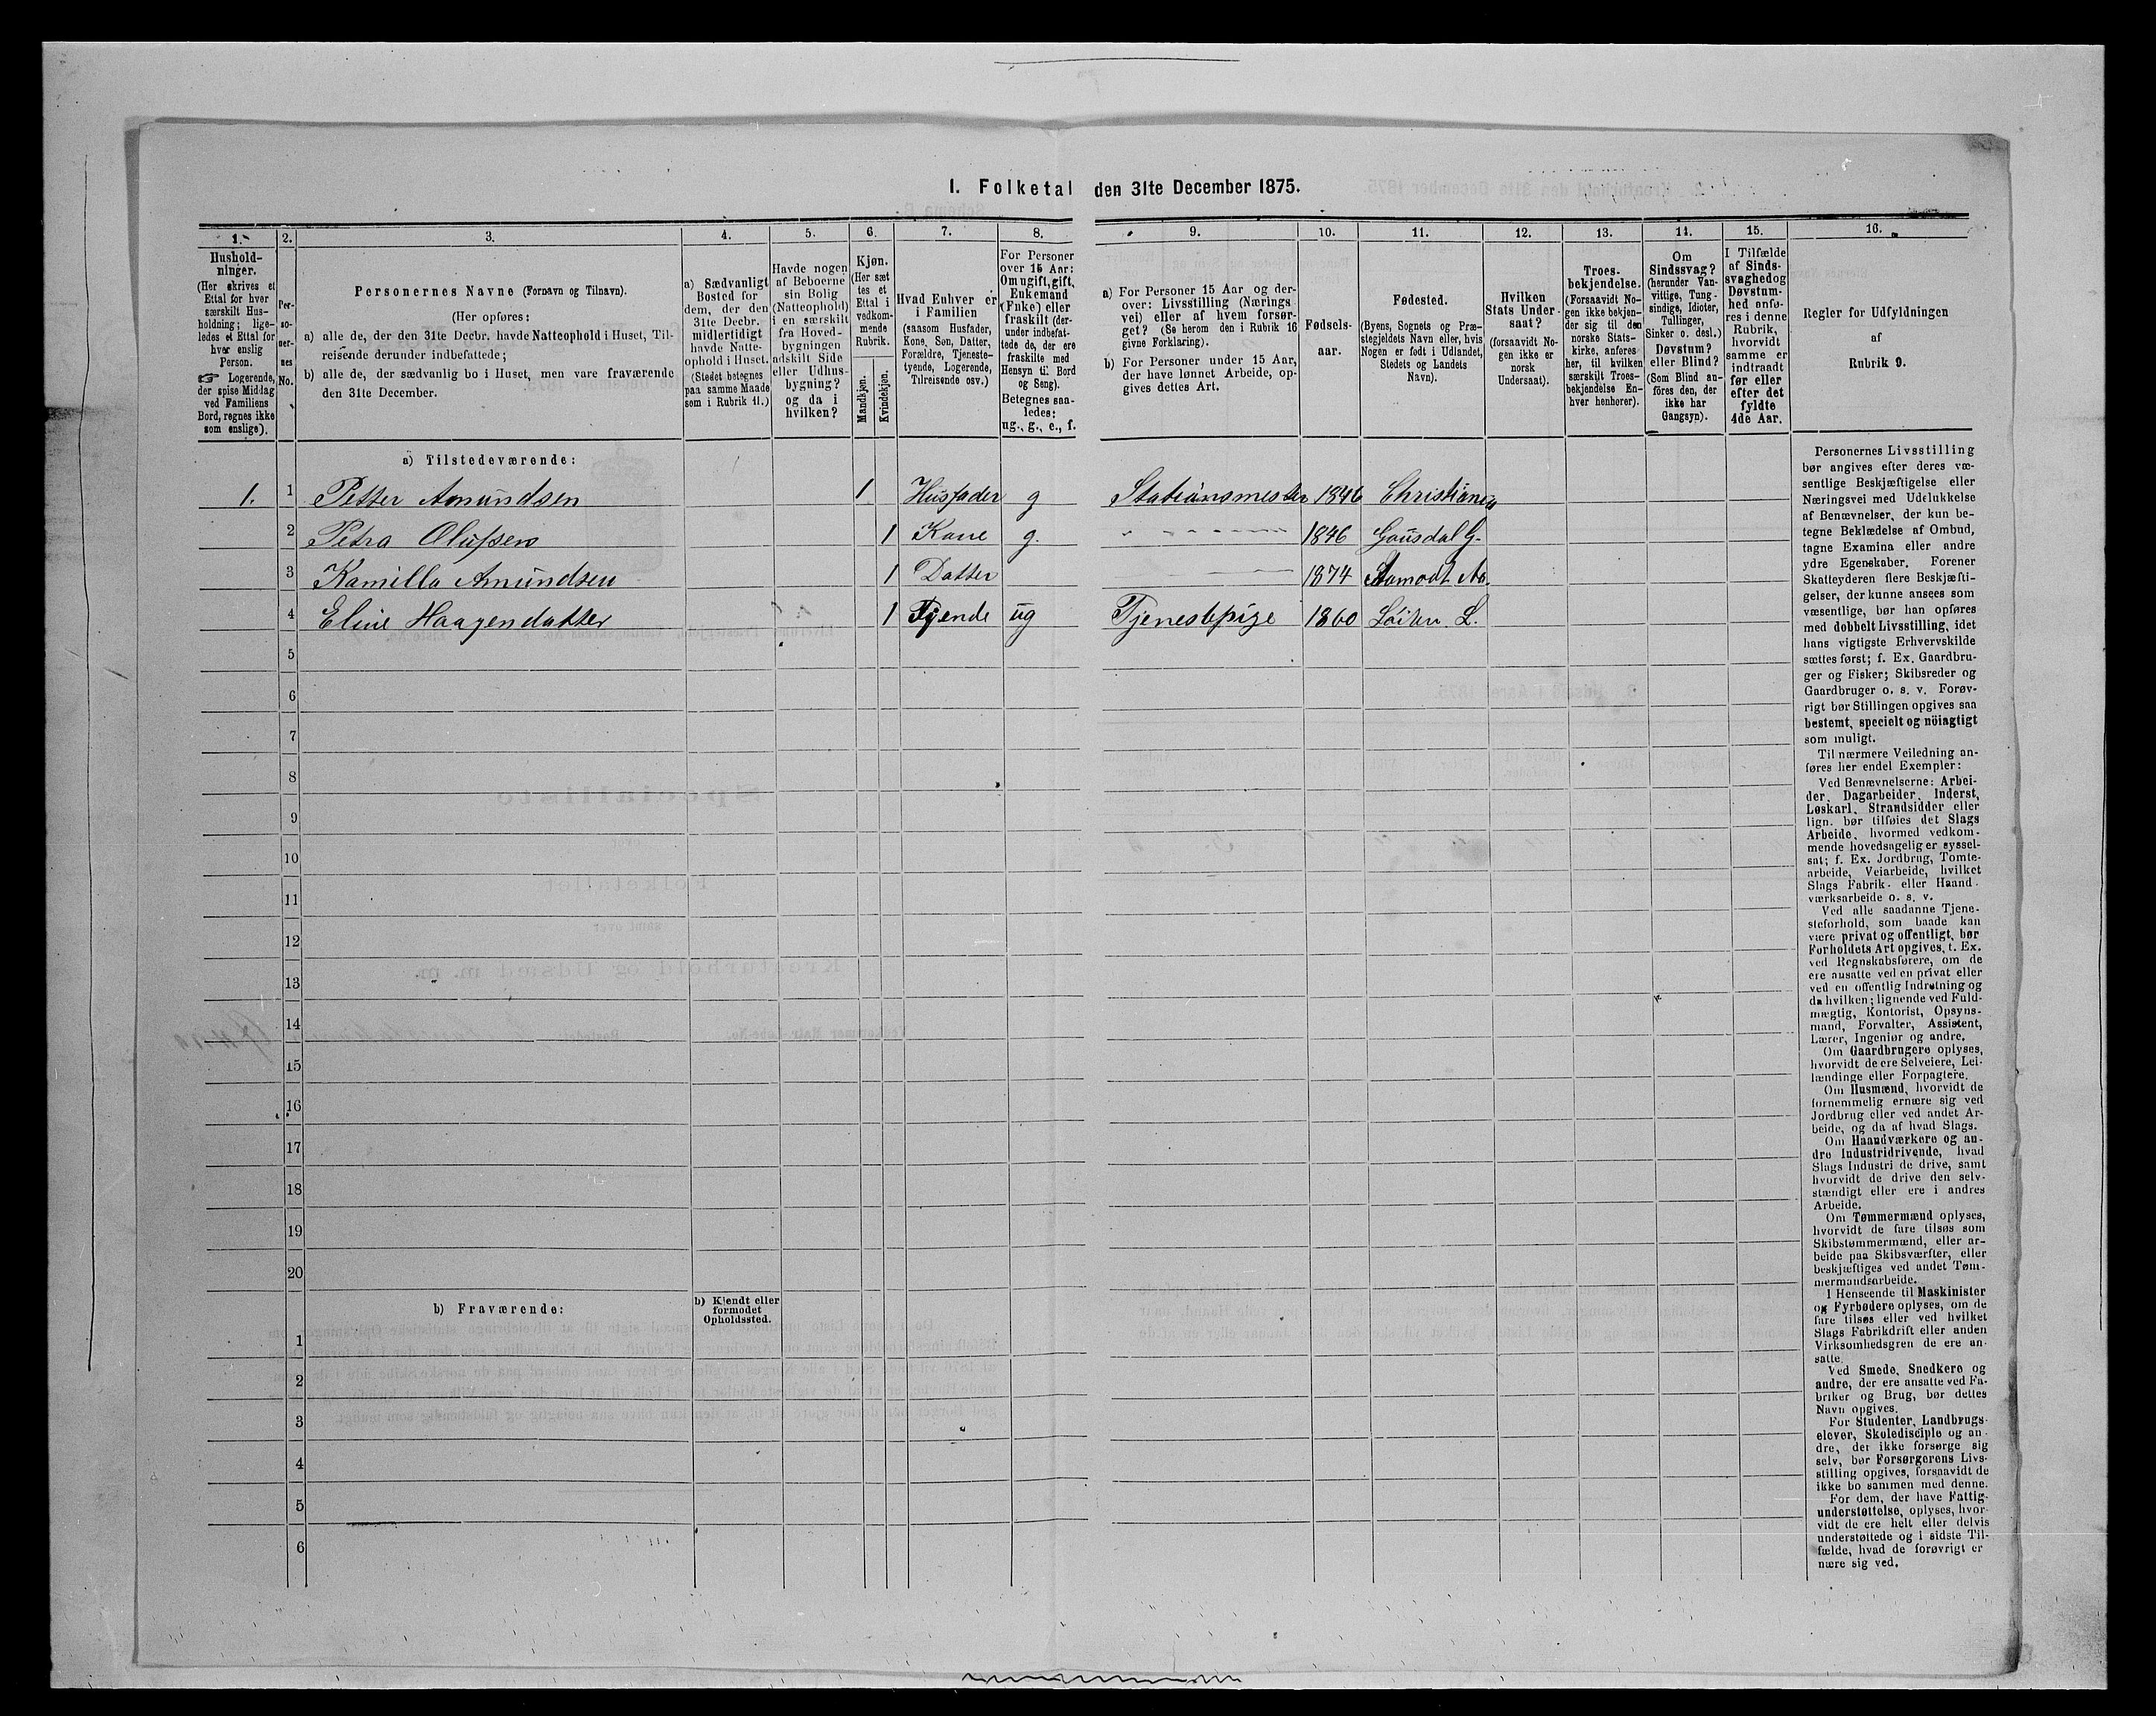 I. Folketal den 31te December 1875.
1. 2. 3. 4. 5. 6. 7. 8. 9. 10. 11. 12. 13. 14. 15. 16.
Hushold-
ninger.
(Her skrives et
Ettal for hver
særskilt Hus-
holdning; lige-
ledes et Ettal for
hver enslig
Person.
☞ Logerende,
der spise Middag
ved Familiens
Bord, regnes ikke
som enslige).
Per-
so-
ner-
nes
No.
Personernes Navne (Fornavn og Tilnavn).
(Her opføres:
a) alle de, der den 31te Decbr. havde Natteophold i Huset, Til-
reisende derunder indbefattede;
b) alle de, der sædvanlig bo i Huset, men vare fraværende
den 31te December.
a) Sædvanligt
Bosted for
dem, der den
31te Decbr.
midlertidigt
havde Natte-
ophold i Huset.
(Stedet betegnes
paa samme Maade
som i Rubrik 11.)
Havde nogen
af Beboerne
sin Bolig
(Natteophold)
i en særskilt
fra Hoved-
bygningen
adskilt Side
eller Udhus-
bygning?
og da i
hvilken?
Kjøn.
(Her sæt
tes et
Ettal i
vedkom-
mende
Rubrik.
Mandkjøn.
Kvindekjøn.
Hvad Enhver er
i Familien
(saasom Husfader,
Kone, Søn, Datter,
Forældre, Tjeneste-
tyende, Logerende,
Tilreisende osv.)
For Personer
over 15 Aar:
Om ugift, gift,
Enkemand
(Enke) eller
fraskilt (der-
under indbefat-
tede de, der ere
fraskilte med
Hensyn til Bord
og Seng).
Betegnes saa-
ledes:
ug., g., e., f.
a) For Personer 15 Aar og der-
over: Livsstilling (Nærings
vei) eller af hvem forsør-
get? (Se herom den i Rubrik 16
givne Forklaring).
b) For Personer under 15 Aar,
der have lønnet Arbeide, op-
gives dettes Art.
Fødsels-
aar.
Fødested.
(Byens, Sognets og Præ-
stegjeldets Navn eller, hvis
Nogen er født i Udlandet,
Stedets og Landets
Navn).
Hvilken
Stats Under-
saat?
(forsaavidt No-
gen ikke er
norsk
Undersaat).
Troes-
bekjendelse.
(Forsaavidt No-
gen ikke bekjen-
der sig til den
norske Stats-
kirke, anføres
her, til hvilken
særskilt Troes-
bekjendelse En-
hver henhører).
Om
Sindssvag?
(herunder Van-
vittige, Tung-
sindige, Idioter,
Tullinger,
Sinker o. desl.)
Døvstum?
eller Blind?
(Som Blind an-
føres den, der
ikke har
Gangsyn).
I Tilfælde
af Sinds-
svaghed og
Døvstum-
hed anfø-
res i denne
Rubrik,
hvorvidt
samme er
indtraadt
før eller
efter det
fyldte
4de Aar.
Regler for Udfyldningen
af
Rubrik 9.
a) Tilstedeværende:
1. 1 Petter Amundsen 1 Husfader g Stationsmester 1846 Christiania
2 Petra Olufsen 1 Kone g. 1846 Gausdal G.
3 Kamilla Amundsen 1 Datter 1874 Aamodt Aa.
4 Eline Haagendatter 1 Tjende ug Tjenestepige 1860 Løiten L.
5
6
7
8
9
10
11
12
13
14
15
16
17
18
19
20
b) Fraværende:
b) Kjendt eller
formodet
Opholdssted.
1
2
3
4
5
6
Personernes Livsstilling
bør angives efter deres væ-
sentlige Beskjæftigelse eller
Næringsvei med Udelukkelse
af Benævnelser, der kun be-
tegne Beklædelse af Ombud,
tagne Examina eller andre
ydre Egenskaber. Forener
Skatteyderen flere Beskjæfti-
gelser, der kunne ansees som
væsentlige, bør han opføres
med dobbelt Livsstilling, idet
hans vigtigste Erhvervskilde
sættes først; f. Ex. Gaardbru-
ger og Fisker; Skibsreder og
Gaardbruger o. s. v. Forøv-
rigt bør Stillingen opgives saa
bestemt, specielt og nöiagtigt
som muligt.
Til nærmere Veiledning an-
føres her endel Exempler:
Ved Benævnelserne: Arbei-
der, Dagarbeider, Inderst,
Løskarl, Strandsidder eller
lign. bør tilføies det Slags
Arbeide, hvormed vedkom-
mende hovedsagelig er syssel-
sat; f. Ex. Jordbrug, Tomte-
arbeide, Veiarbeide, hvilket
Slags Fabrik- eller Haand-
værksarbeide o. s. v.
Ved alle saadanne Tjene-
steforhold, som baade kan
være privat og offentligt, bør
Forholdets Art opgives, t. Ex.
ved Regnskabsførere, om de
ere ansatte ved en privat eller
ved en offentlig Indretning og
da hvilken; lignende ved Fuld-
mægtig, Kontorist, Opsyns-
mand, Forvalter, Assistent,
Lærer, Ingeniør og andre.
Om Gaardbrugere oplyses,
hvorvidt de ere Selveiere, Lei-
lændinge eller Forpagtere.
Om Husmænd, hvorvidt de
fornemmelig ernære sig ved
Jordbrug eller ved andet Ar-
beide, og da af hvad Slags.
Om Haandværkere og an-
dre Industridrivende, hvad
Slags Industri de drive, samt
hvorvidt de drive den selv-
stændigt eller ere i andres
Arbeide.
Om Tømmermænd oplyses,
hvorvidt de fare tilsøs som
Skibstømmermænd, eller ar-
beide paa Skibsværfter, eller
beskjæftiges ved andet Tøm-
mermandsarbeide.
I Henseende til Maskinister
og Fyrbødere oplyses, om de
fare tilsøs eller ved hvilket
Slags Fabrikdrift eller anden
Virksomhedsgren de ere an-
satte.
Ved Smede, Snedkere og
andre, der ere ansatte ved Fa-
briker og Brug, bør dettes
Navn opgives.
For Studenter, Landbrugs-
elever, Skoledisciple og an-
dre, der ikke forsørge sig
selv, bør Forsørgerens Livs-
stilling opgives, forsaavidt de
ikke bo sammen med denne.
For dem, der have Fattig-
understøttelse, oplyses, hvor-
vidt de ere helt eller delvis
understøttede og i sidste Til-
fælde, hvad de forøvrigt er
nære sig ved.